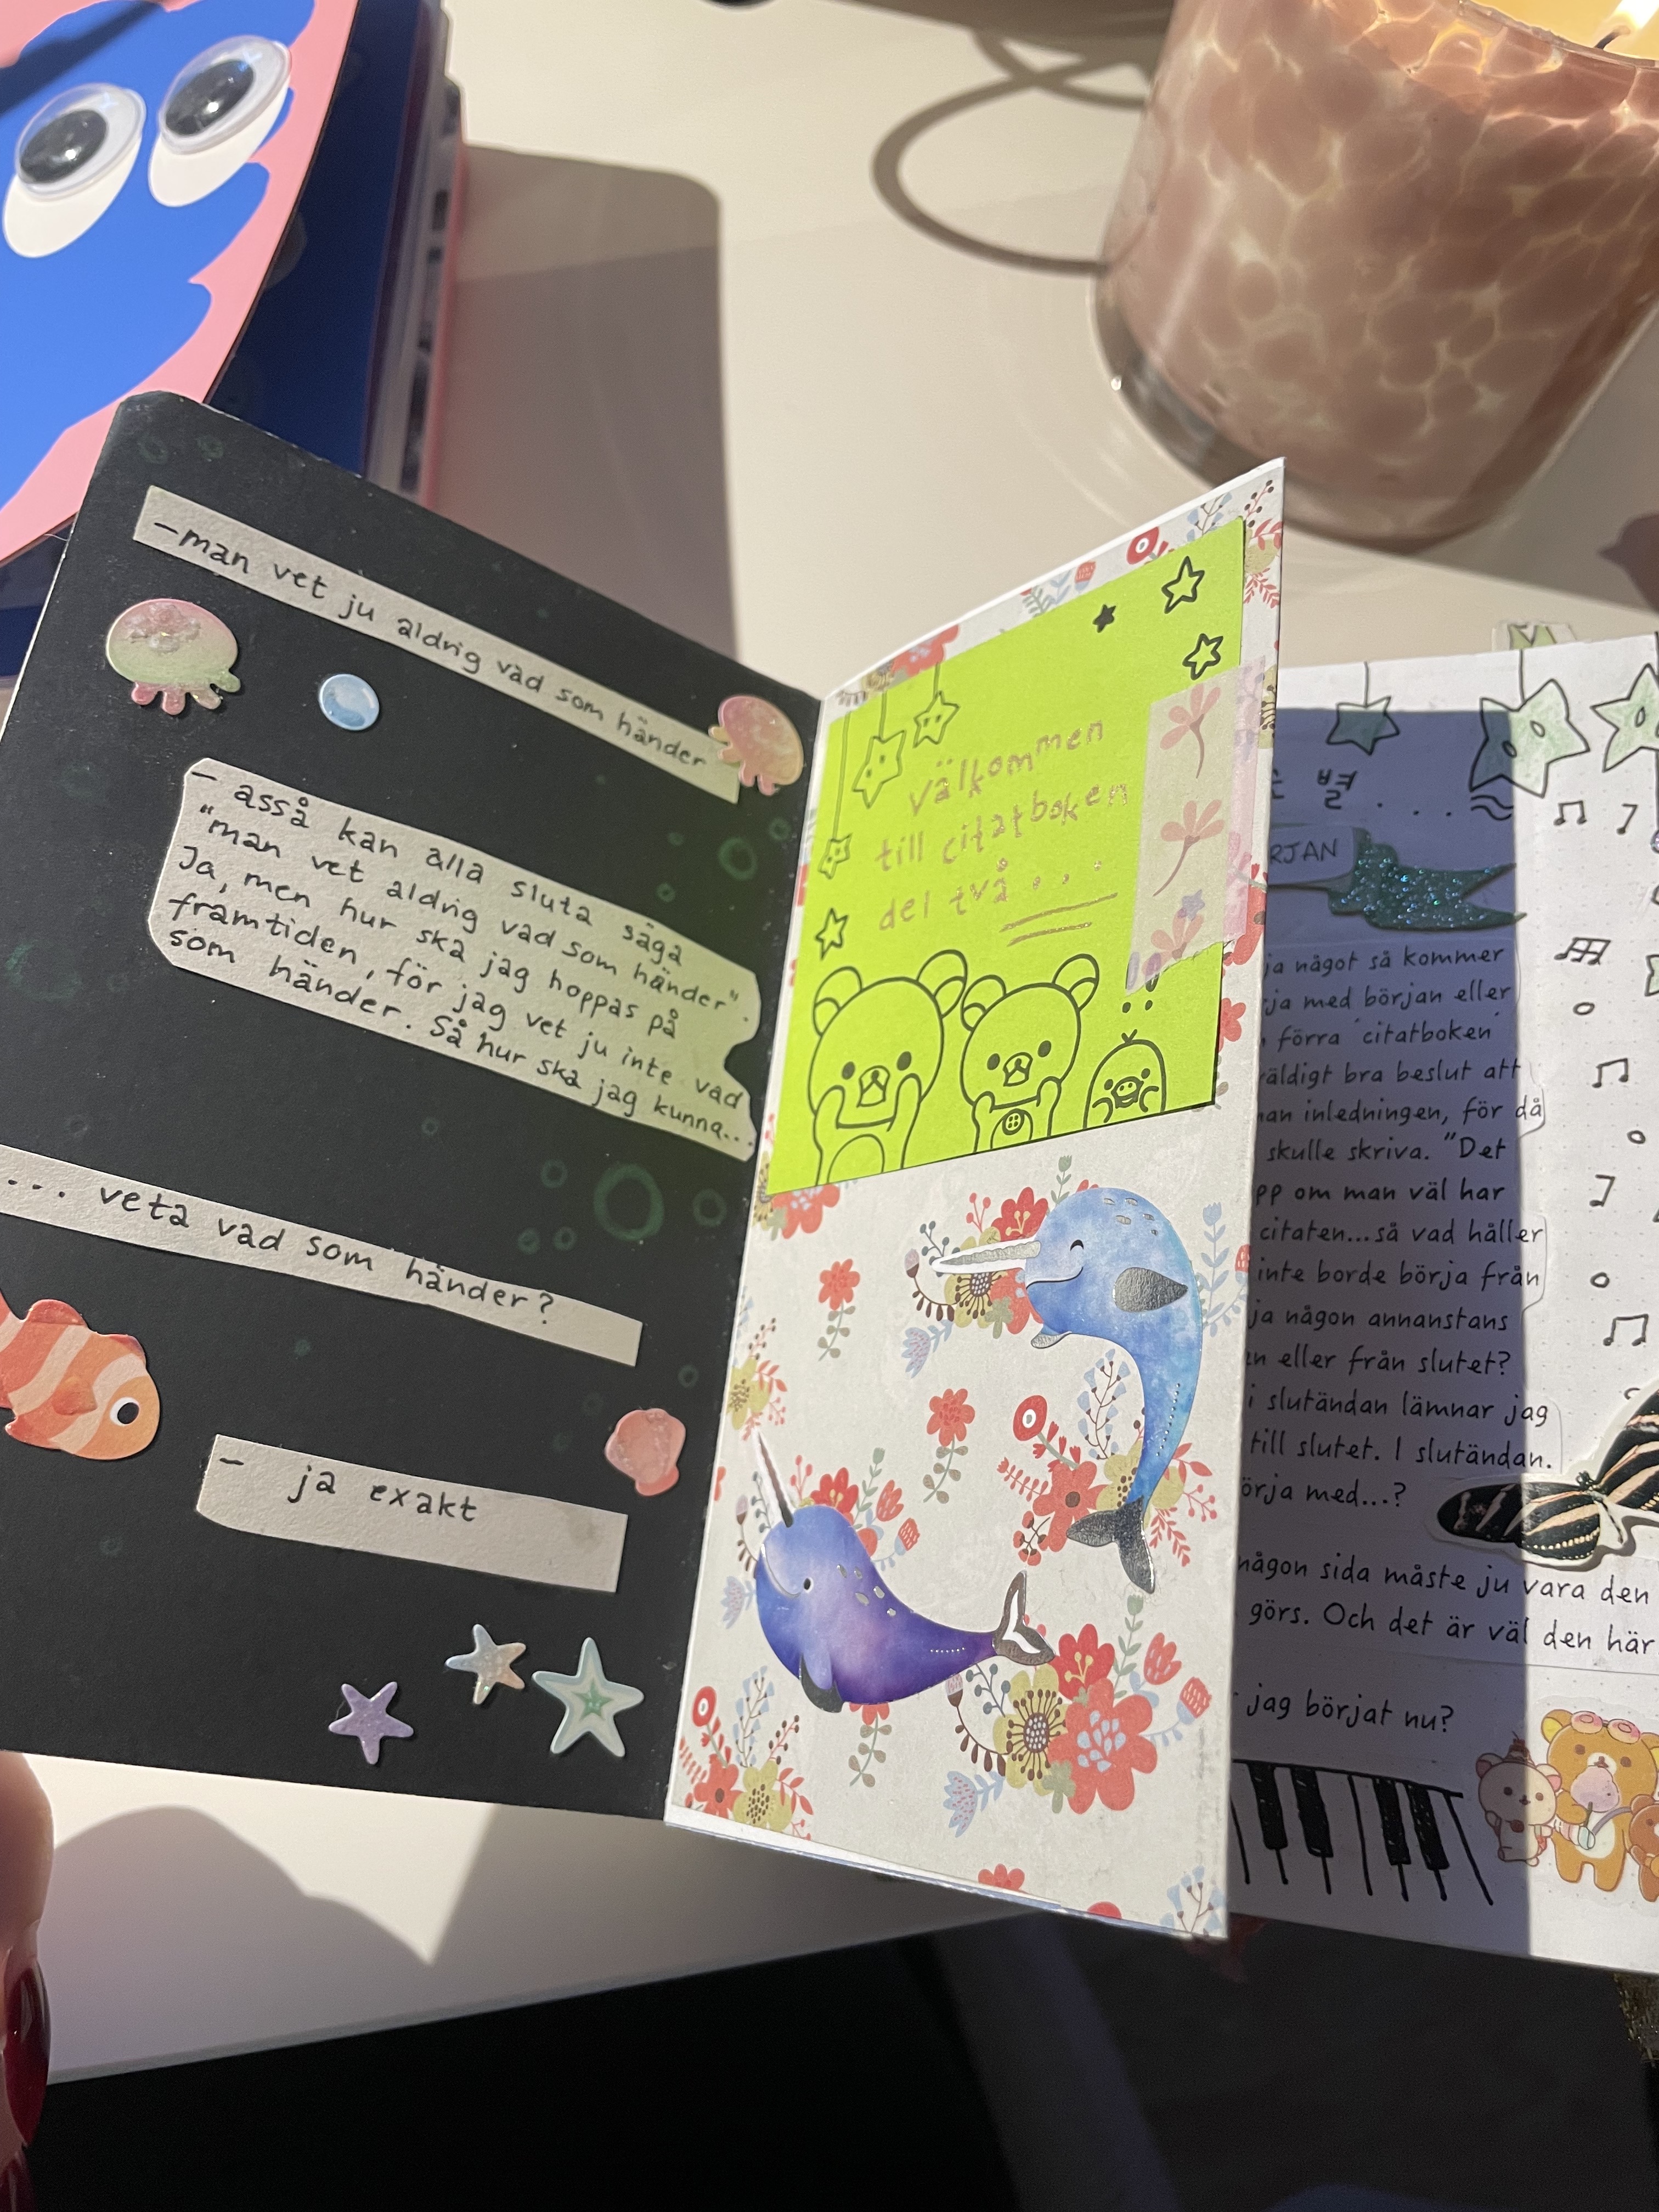 -man vet ju aldrig vad som händer
- asså kan alla sluta säga
"man vet aldrig vad som händer".
Ja, men hur ska jag hoppas på
framtiden, för jag vet ju inte vad
som händer. Så hur ska jag kunna...
... veta vad som händer?
- ja exakt
välkommen
till citatboken
del två...
별...
något så kommer
med början eller
förra 'citatboken'
bra beslut att
inledningen, för då
skulle skriva. "Det
om man väl har
citaten...så vad håller
inte borde börja från
någon annanstans
eller från slutet?
i slutändan lämnar jag
till slutet. I slutändan.
med...?
någon sida måste ju vara den
görs. Och det är väl den här
jag börjat nu?